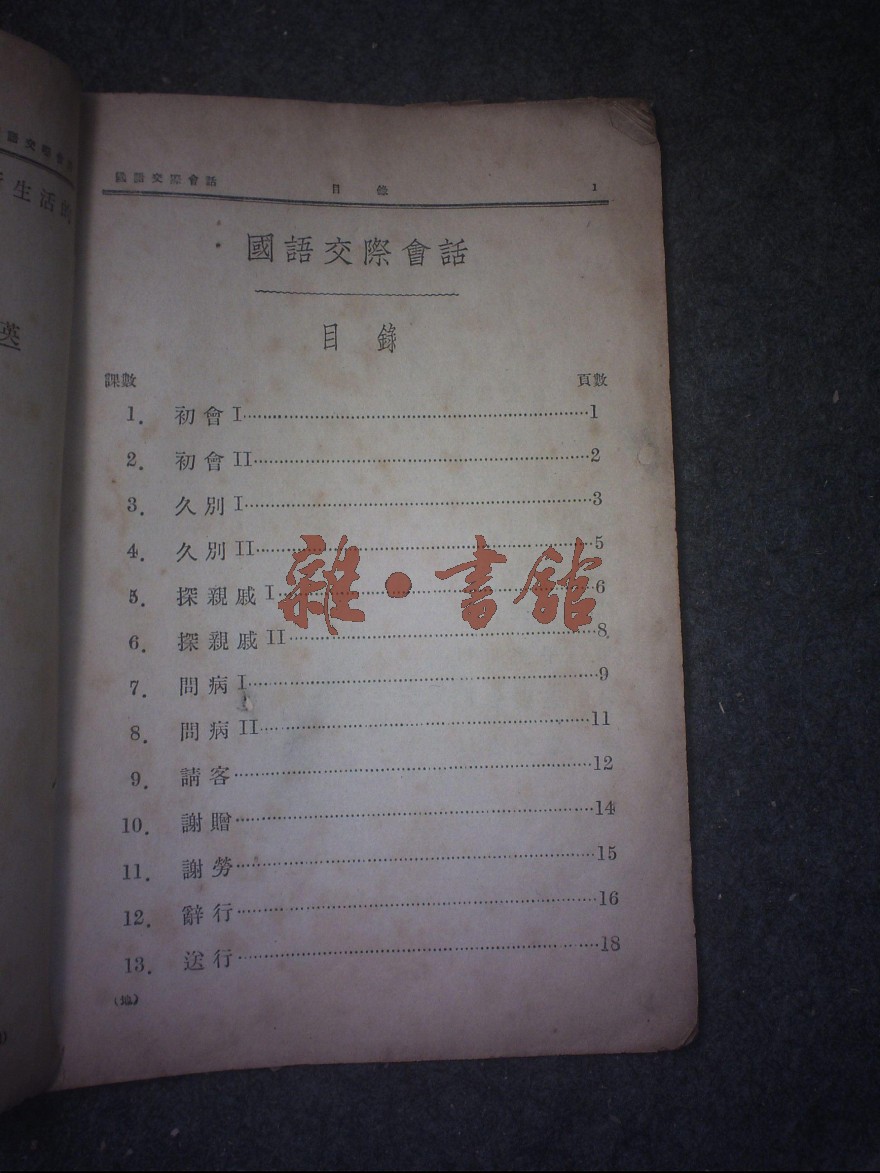 國語交際會話 目錄 1
國語交際會話
目錄
課數 頁數
1. 初會 I 1
2. 初會 II 2
3. 久別 I 3
4. 久別 II 5
5. 探親戚 I 6
6. 探親戚 II 8
7. 問病 I 9
8. 問病 II 11
9. 請客 12
10. 謝贈 14
11. 謝勞 15
12. 辭行 16
13. 送行 18
雜·書館
語交際會話
生活的
英